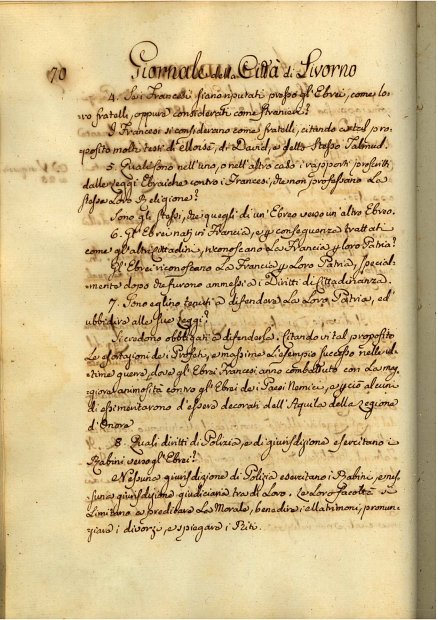 70 Giornale della Città di Livorno
4. Se i Francesi siano riputati presso gl'Ebrei, come lo-
ro fratelli, oppure considerati come stranieri?
I Francesi si considerano come fratelli, citando a tal pro-
posito molti testi di Mosè, di David, e dello stesso Talmud.
5. Quali sono nell'uno, o nell'altro caso i rapporti prescritti
dalle leggi Ebraiche contro i Francesi, che non professano La
stessa Loro Religione?
Sono gli stessi, che quegli di un'Ebreo verso un'altro Ebreo.
6. Gl'Ebrei nati in Francia, e per conseguenza trattati
come gl'altri Cittadini, riconoscano La Francia per loro Patria?
Gl'Ebrei riconoscono La Francia per Loro Patria, special-
mente dopo che furono ammessi a i Diritti di Cittadinanza.
7. Sono eglino tenuti a difendere La Loro Patria, ed
ubbidire alle sue Leggi?
Si credono obbligati a difenderla. Citando in tal proposito
Le esortazioni de Profeti, e massime L'esempio successo nelle ul-
time guerre, dove gl'Ebrei Francesi anno combattuto con La mag-
giore animosità contro gl'Ebrei de i Paesi Nemici, e per ciò alcuni
di essi meritarono d'essere decorati dell'Aquila della Legione
d'Onore
8. Quali diritti di Polizia, e di giurisdizione esercitano i
Rabini verso gl'Ebrei?
Nessuna giurisdizione di Polizia esercitano i Rabini, e nes-
suna giurisdizione giudiciaria tra di Loro. Le Loro facoltà si
Limitano a predicare La Morale, benedire i Matrimoni, pronun-
ziare i divorzi, e spiegare i Riti.